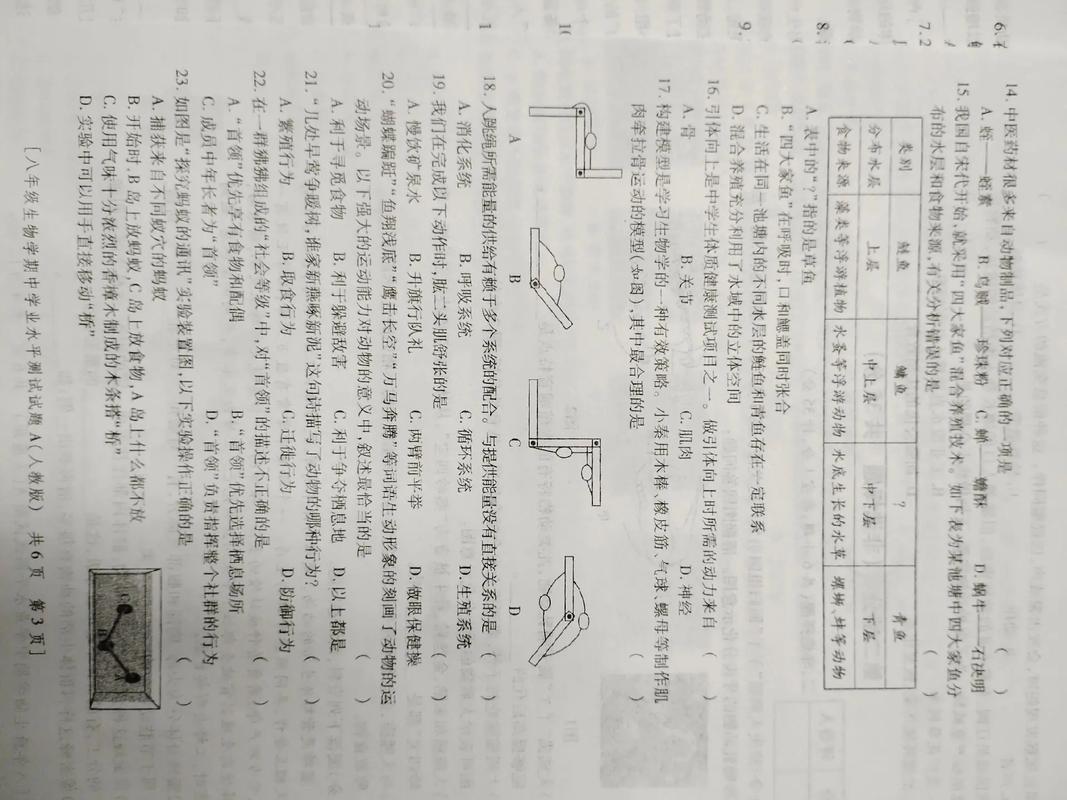 6.
7.2
8.
(
9.
1(
1
14. 中医药材很多来自动物制品,下列对应正确的一项是 ( )
A. 蛭——蛭素 B. 乌贼——珍珠粉 C. 蝉——蟾酥 D. 蜗牛——石决明
15. 我国自宋代开始,就采用“四大家鱼”混合养殖技术。如下表为某池塘中四大家鱼分
布的水层和食物来源,有关分析错误的是 ( )
类别 鲢鱼 鳙鱼 ? 青鱼
分布水层 上层 中上层 中下层 下层
食物来源 藻类等浮游植物 水蚤等浮游动物 水底生长的水草 螺蛳、蚌等动物
A. 表中的“?”指的是草鱼
B. “四大家鱼”在呼吸时,口和鳃盖同时张合
C. 生活在同一池塘内的不同水层的鲢鱼和青鱼存在一定联系
D. 混合养殖充分利用了水域中的立体空间
16. 引体向上是中学生体质健康测试项目之一。做引体向上时所需的动力来自 ( )
A. 骨 B. 关节 C. 肌肉 D. 神经
17. 构建模型是学习生物学的一种有效策略。小秦用木棒、橡皮筋、气球、螺母等制作肌
肉牵拉骨运动的模型(如图),其中最合理的是 ( )
A B C D
18. 人跳绳所需能量的供给有赖于多个系统的配合。与提供能量没有直接关系的是 ( )
A. 消化系统 B. 呼吸系统 C. 循环系统 D. 生殖系统
19. 我们在完成以下动作时,肱二头肌舒张的是 ( )
A. 慢饮矿泉水 B. 升旗行队礼 C. 两臂前平举 D. 做眼保健操
20. “蝴蝶蹁跹”“鱼翔浅底”“鹰击长空”“万马奔腾”等词语生动形象的刻画了动物的运
动场景。以下强大的运动能力对动物的意义中,叙述最恰当的是 ( )
A. 利于寻觅食物 B. 利于躲避敌害 C. 利于争夺栖息地 D. 以上都是
21. “几处早莺争暖树,谁家新燕啄新泥”这句诗描写了动物的哪种行为? ( )
A. 繁殖行为 B. 取食行为 C. 迁徙行为 D. 防御行为
22. 在一群狒狒组成的“社会等级”中,对“首领”的描述不正确的是 ( )
A. “首领”优先享有食物和配偶 B. “首领”优先选择栖息场所
C. 成员中年长者为“首领” D. “首领”负责指挥整个社群的行为
23. 如图是“探究蚂蚁的通讯”实验装置图,以下实验操作正确的是 ( )
A. 捕获来自不同蚁穴的蚂蚁
B. 开始时,B 岛上放蚂蚁,C 岛上放食物,A 岛上什么都不放
C. 使用气味十分浓烈的香樟木制成的木条搭“桥”
D. 实验中可以用手直接移动“桥”
[八年级生物学期中学业水平测试试题 A(人教版) 共 6 页 第 3 页]